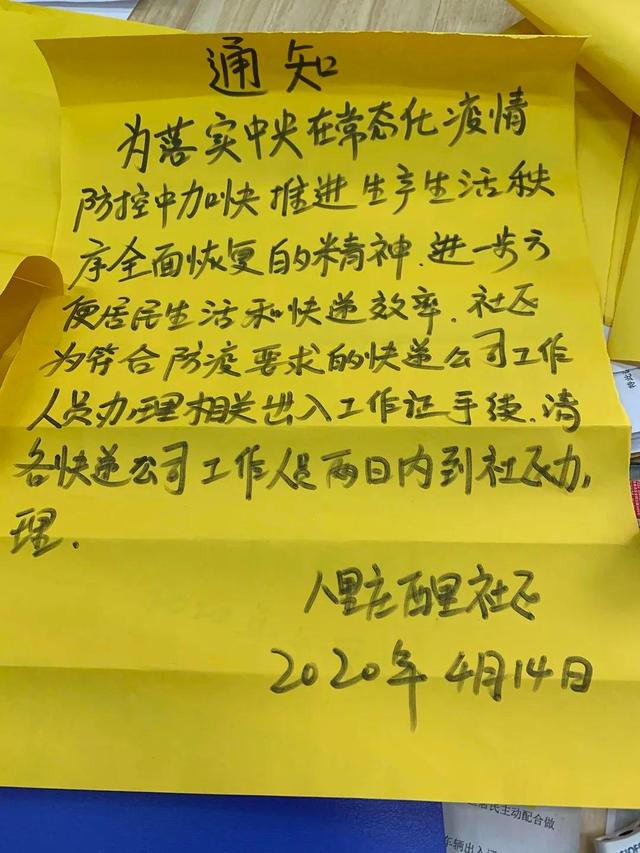 通知
为落实中央在常态化疫情
防控中加快推进生产生活秩
序全面恢复的精神.进一步方
便居民生活和快递效率.社区
为符合防疫要求的快递公司工作
人员办理相关出入工作证手续.请
各快递公司工作人员两日内到社区办
理.
八里庄西里社区
2020年4月14日
居民主动配合做
车辆出入